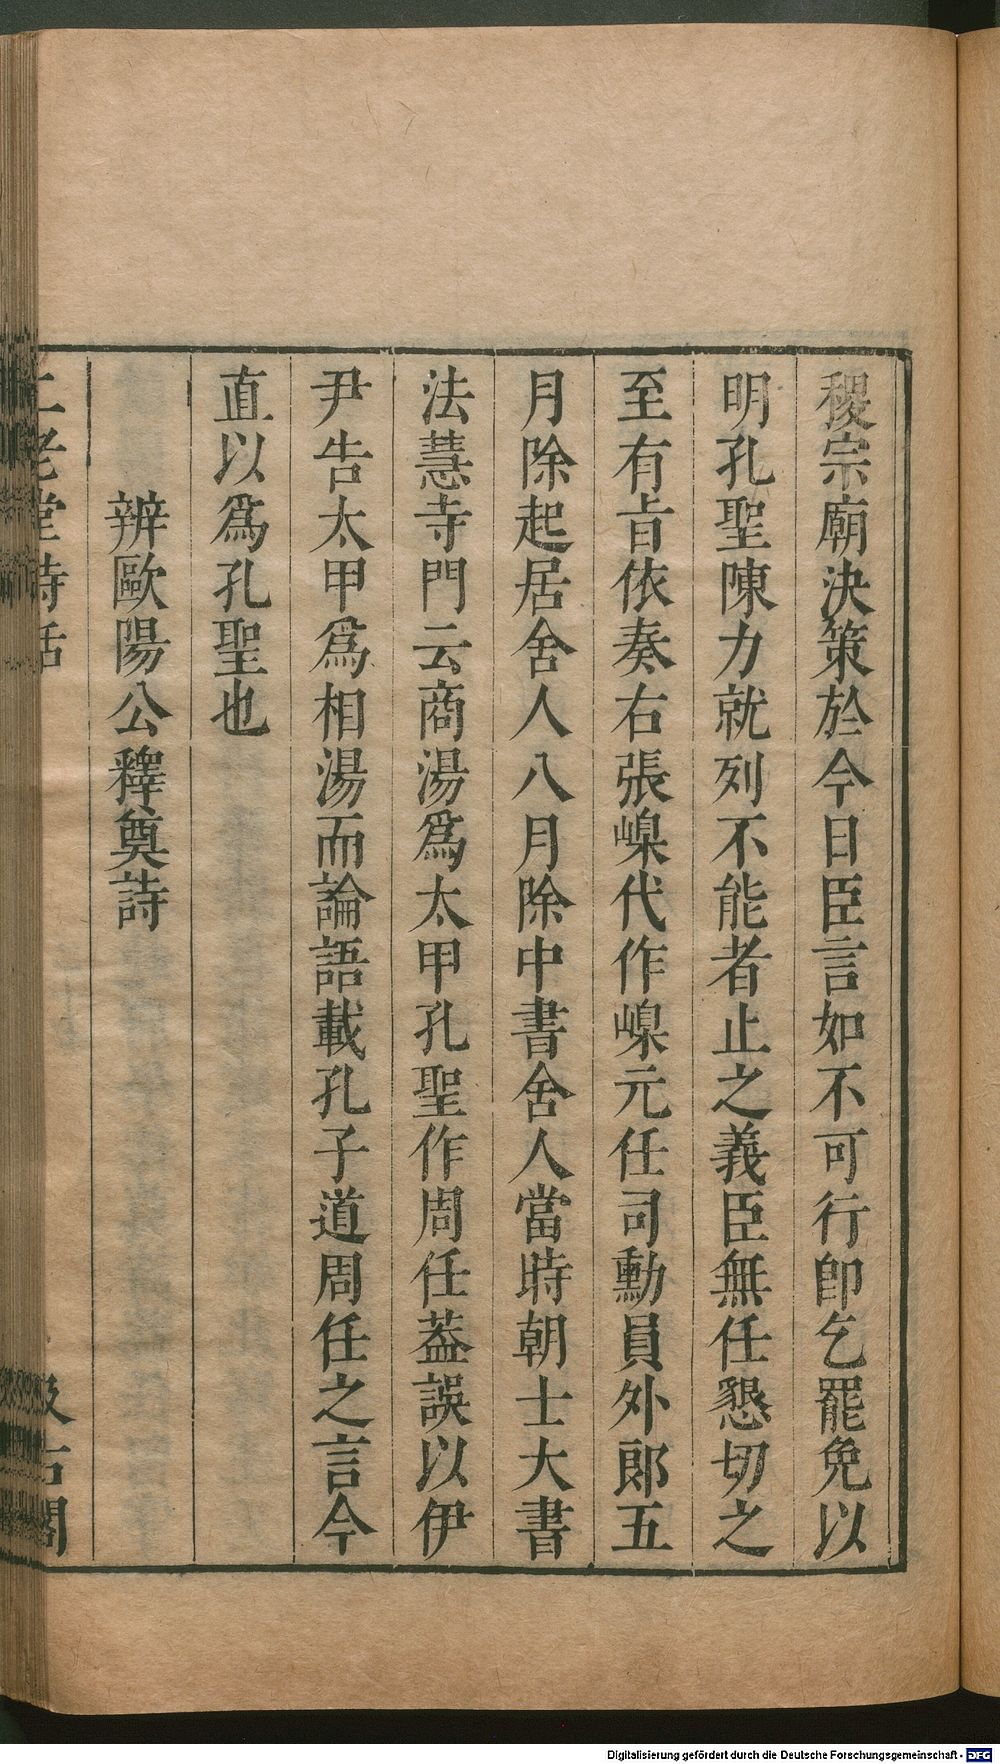 稷宗廟決策於今日臣言如不可行卽乞罷免以
明孔聖陳力就列不能者止之義臣無任懇切之
至有旨依奏右張嵲代作嵲元任司勳員外郎五
月除起居舍人八月除中書舍人當時朝士大書
法慧寺門云商湯爲太甲孔聖作周任葢誤以伊
尹告太甲爲相湯而論語載孔子道周任之言今
直以爲孔聖也
辨歐陽公釋奠詩
二老堂詩話
汲古閣
Digitalisierung gefördert durch die Deutsche Forschungsgemeinschaft - DFG